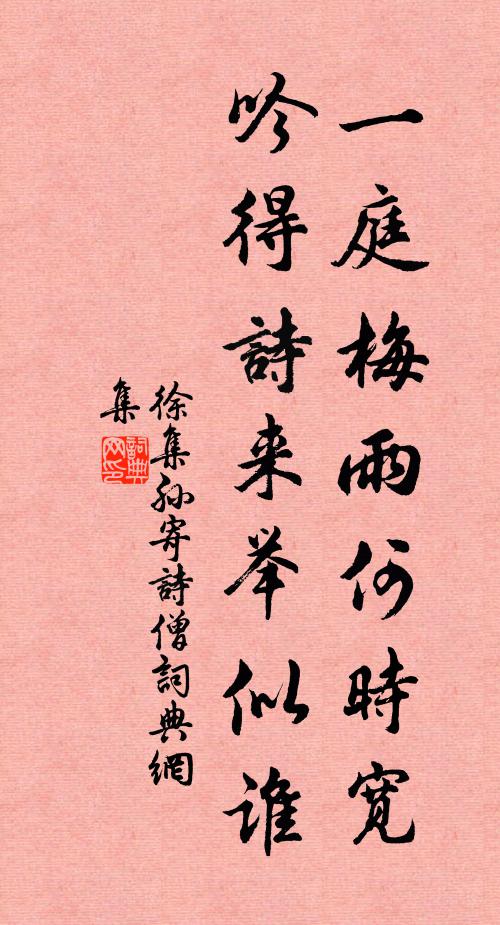 一庭梅雨何時寬
吟得詩来举似谁
徐集孙寄詩僧詞典網
集
詞典網印